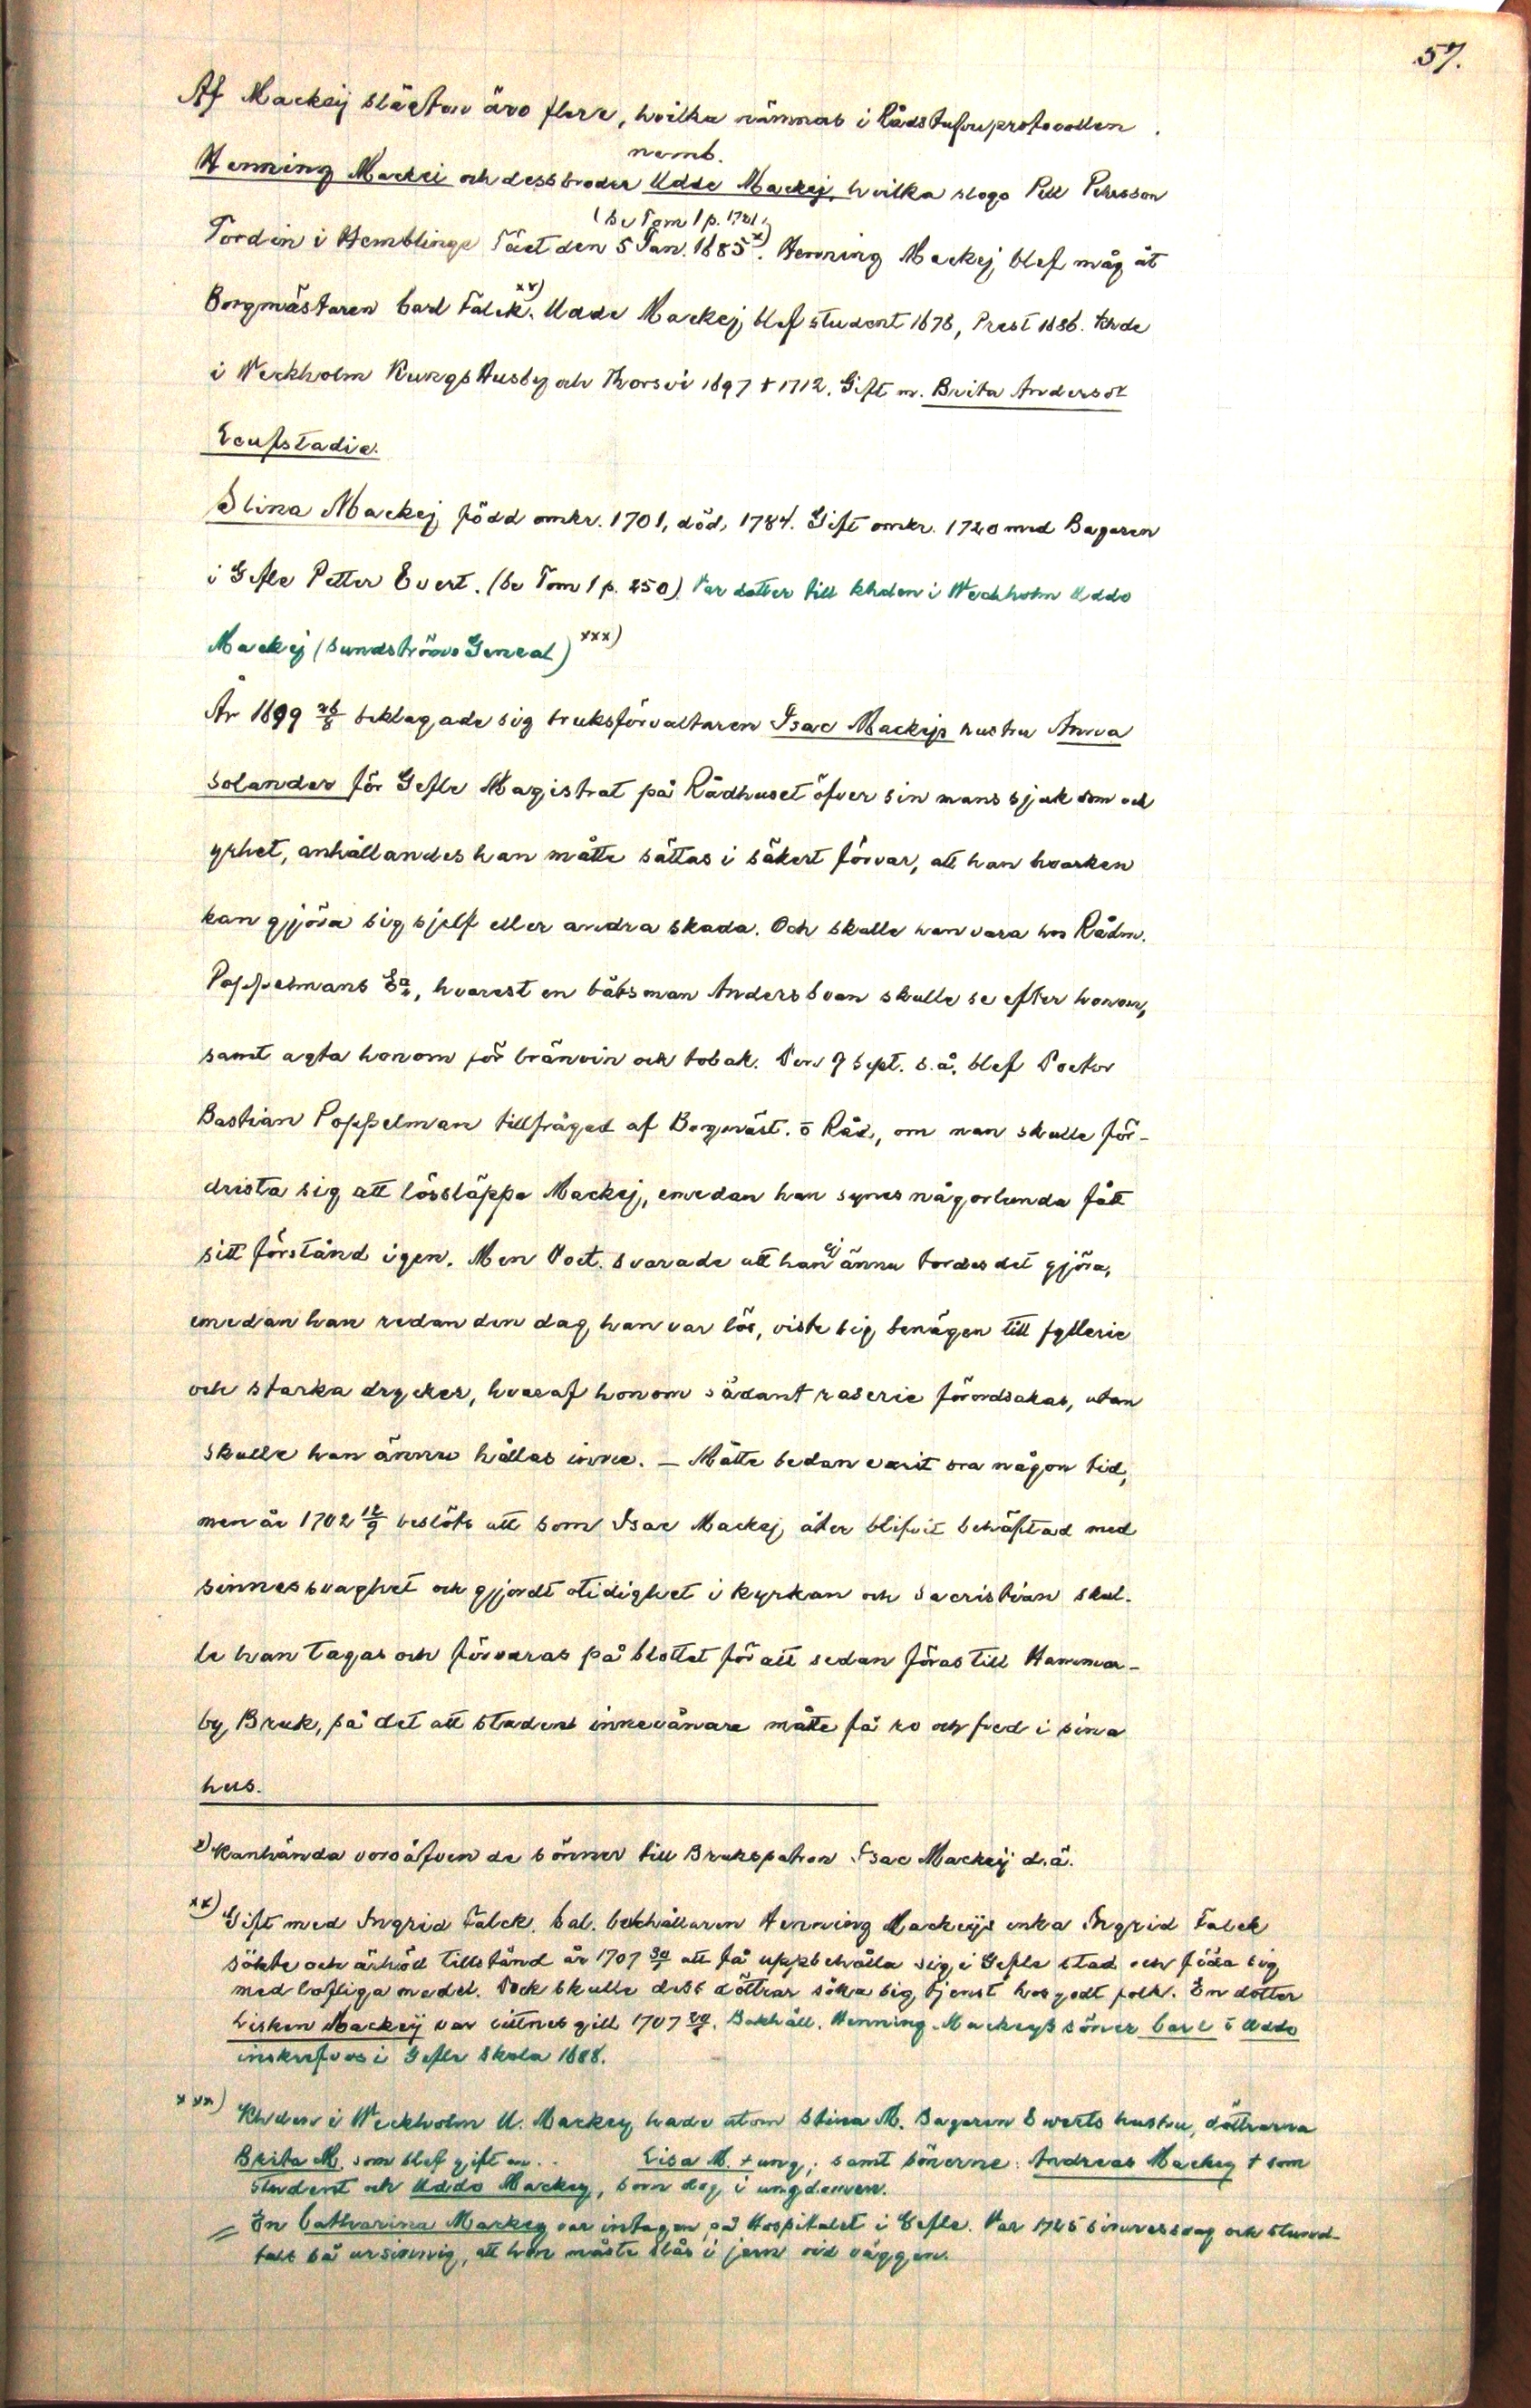 57.
Af Mackeij släcten äro flere, hvilka nämnas i Rådstufvuprotocollen.
nemb.
Henning Mackei och dess broder Udde Mackej, hvilka slogo Pell Persson
(Se Tom 1 p. 172)
Tordin i Hemblinge Täct den 5 Jan. 1685 x). Henning Mackej blef måg åt
Borgmästaren Carl Falck. xx) Udde Mackej blef student 1678, Prest 1686. Khde
i Weckholm Kungs Husby och Thorsvi 1697 † 1712. Gift m. Brita Andersdr
Leufstadia.
Stina Mackej född omkr. 1701, död, 1784. Gift omkr. 1720 med Bagaren
i Gefle Petter Evert. (Se Tom 1 p. 250) Var dotter till khden i Weckholm Uddo
Mackej (Sundströms Geneal) xxx)
År 1699 26/8 beklagade sig bruksförvaltaren Isac Mackejs hustru Anna
Solander för Gefle Magistrat på Rådhuset öfver sin mans sjukdom och
yrhet, anhållandes han måtte sättas i säkert förvar, att han hvarken
kan gjöra sig sjelf eller andra skada. Och skulle han vara hos Rådm.
Poppelmans Ea, hvarest en båtsman Anders Svan skulle se efter honom,
samt agta honom för bränvin och tobak. Den 9 Sept. s.å. blef Doctor
Bastian Poppelman tillfrågad af Borgmäst. o Råd, om man skulle för-
drista sig att lössläppa Mackej, emedan han synes någorlunda fått
sitt förstånd igen. Men Doct. svarade att han ej ännu tordes det gjöra,
emedan han redan den dag han var lös, viste sig benägen till fyllerie
och starka drycker, hvaraf honom sådant raserie förordsakas, utan
skulle han ännu hållas inne. – Måtte sedan varit bra någon tid,
men år 1702 12/9 beslöts att som Isac Mackej åter blifvit behäftad med
sinnessvaghet och gjordt otidighet i kyrkan och Sacristian skul-
le han tagas och förvaras på slottet för att sedan föras till Hammar-
by Bruk, på det att stadens innevånare måtte få ro och fred i sina
hus.
x) Kanhända voro äfven de söner till Brukspatron Isac Mackeij d.ä.
xx) Gift med Ingrid Falck. Sal. bokhållaren Henning Mackeijs enka Ingrid Falck
sökte och ärhöd tillstånd år 1707 att få uppbehålla sig i Gefle stad och föda sig
med lofliga medel. Dock skulle dess döttrar söka sig tjenst hos godt folk. En dotter
Lisken Mackeij var vittnesgill 1707. Bokhåll. Henning Mackeys söner Carl o Uddo
inskrefvos i Gefle Skola 1688.
xxx) Khden i Weckholm U. Mackey hade utom Stina M. Bagaren Ewerts hustru, döttrarna
Brita M. som blef gift m. .. Lisa M. † ung; samt sönerne: Andreas Mackey † som
Student och Uddo Mackey, som dog i ungdomen.
= En Catharina Mackey var intagen på Hospitalet i Gefle. Var 1725 sinnessvag och stund-
tals så ursinnig, att hon måste slås i jern vid väggen.